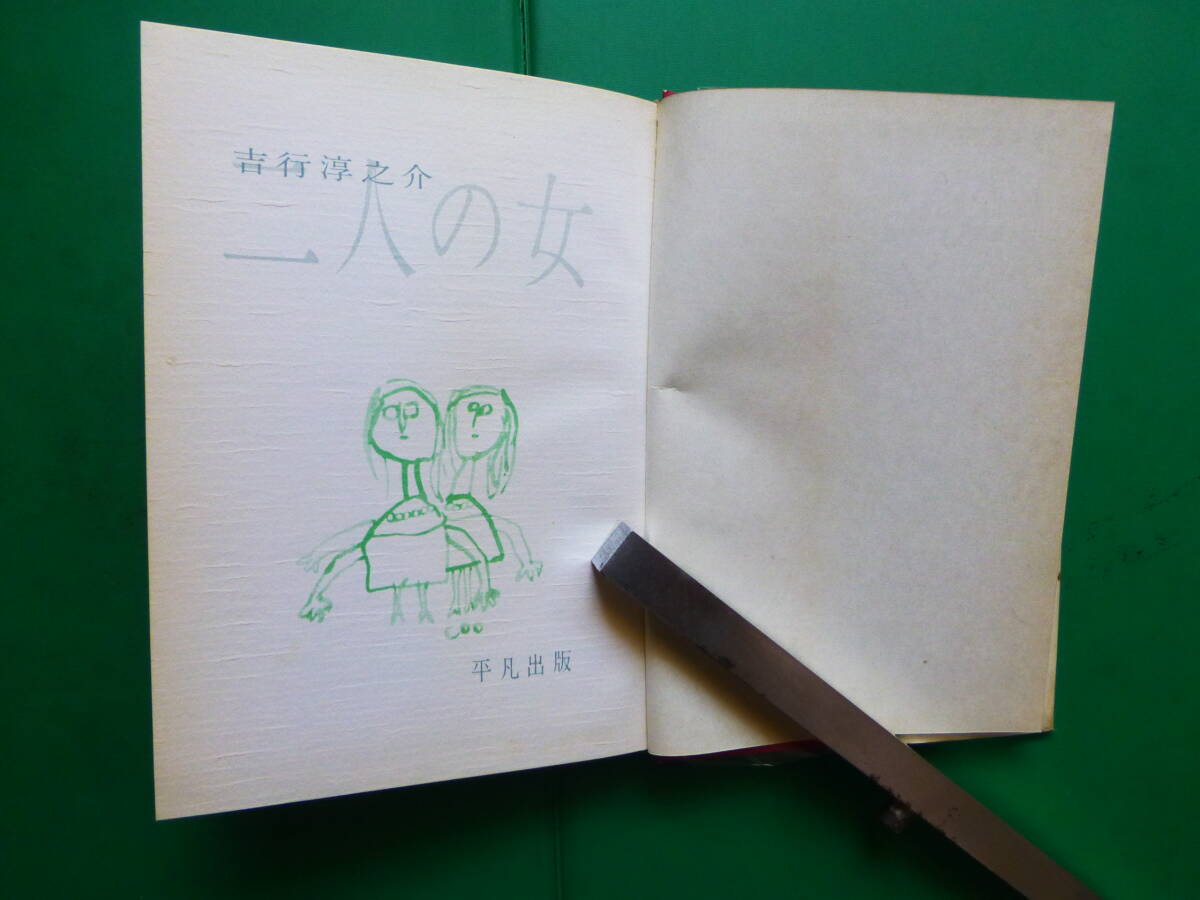 吉行淳之介
二人の女
平凡出版